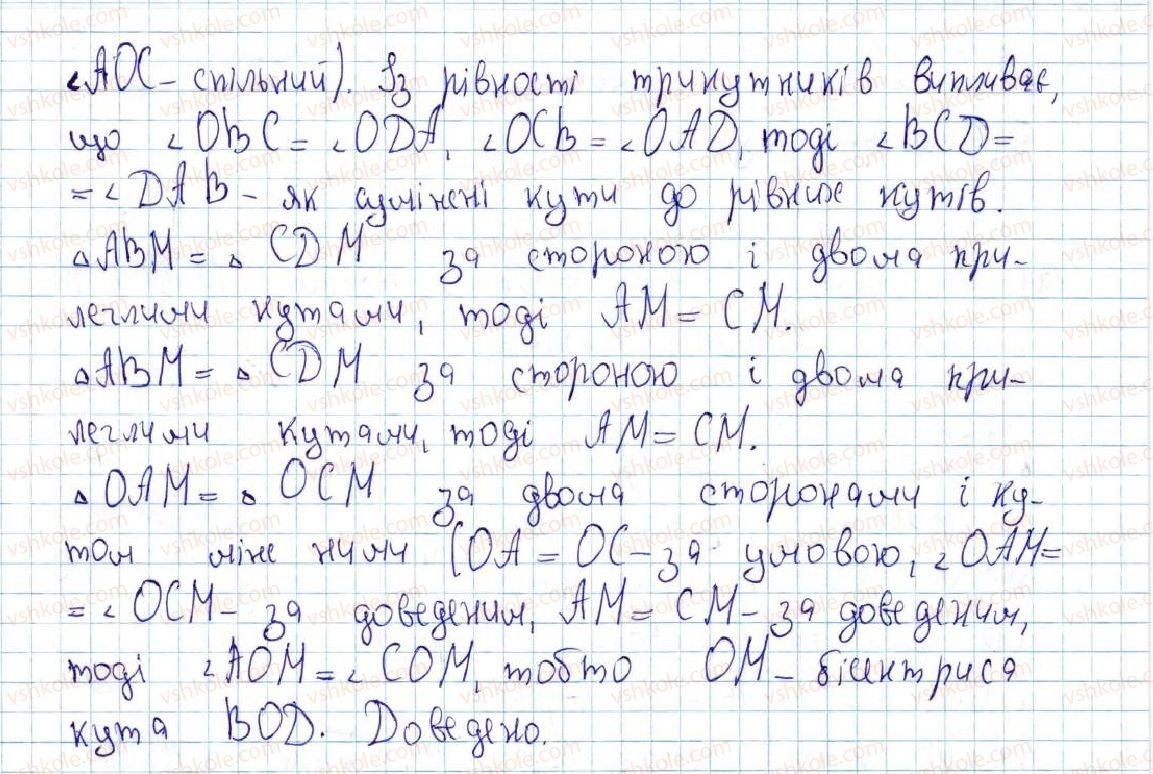 ∠AOC – спільний). Із рівності трикутників випливає,
що ∠OBC = ∠ODA, ∠OCB = ∠OAD, тоді ∠BCD =
= ∠DAB – як суміжні кути до рівних кутів.
△ABM = △CDM за стороною і двома при-
леглими кутами, тоді AM = CM.
△ABM = △CDM за стороною і двома при-
леглими кутами, тоді AM = CM.
△OAM = △OCM за двома сторонами і ку-
том між ними (OA = OC – за умовою, ∠OAM =
= ∠OCM – за доведеним, AM = CM – за доведеним,
тоді ∠AOM = ∠COM, тобто OM – бісектриса
кута BOD. Доведено.
vshkole.com